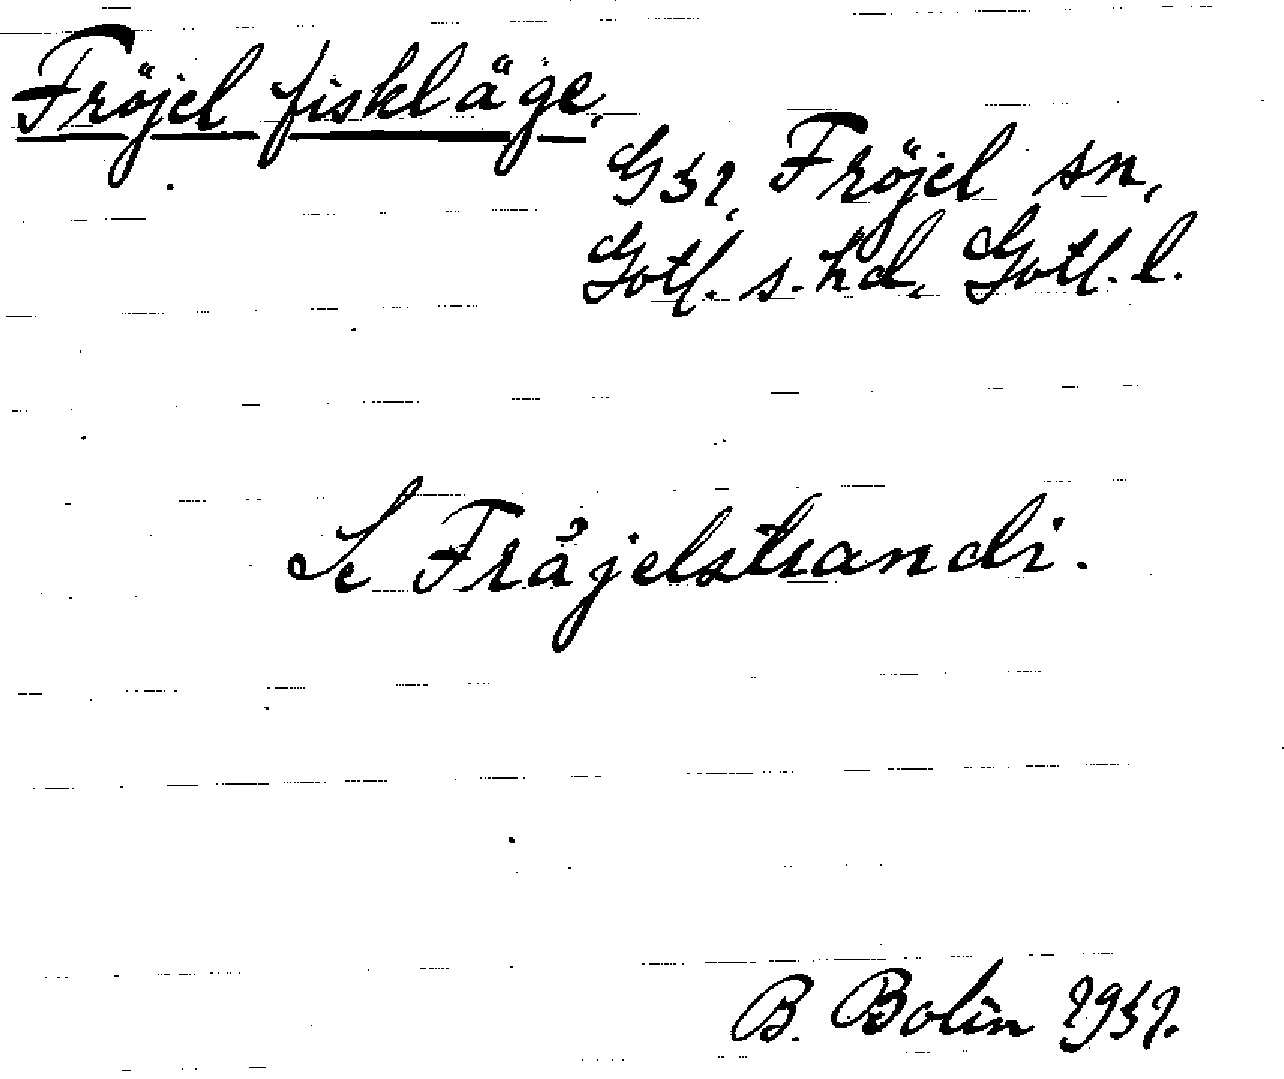 Fröjel fiskläge.
G 51, Fröjel sn,
Gotl. s. hd, Gotl. l.
Se Fråjelstrandi.
B. Bolin 1951.